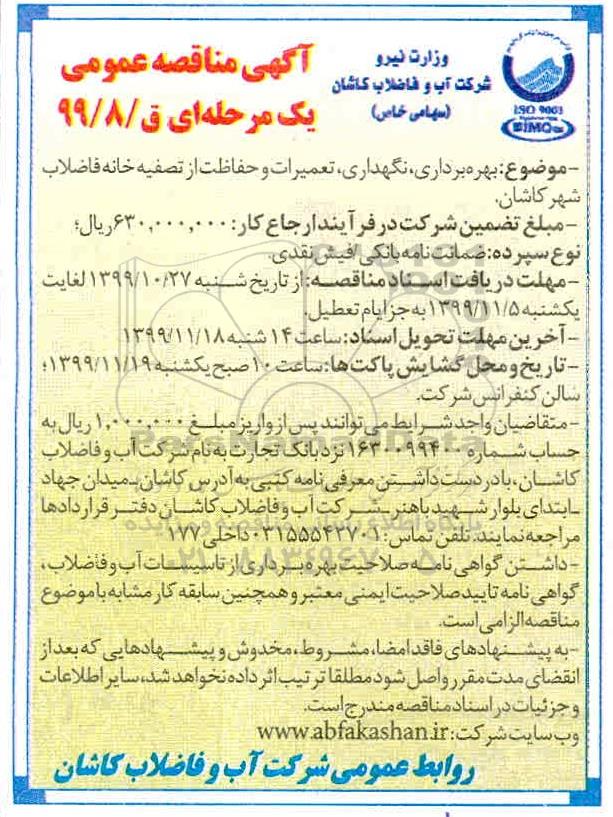 وزارت نیرو
شرکت آب و فاضلاب کاشان
(سهامی خاص)
ISO 9001
آگهی مناقصه عمومی
یک مرحله‌ای ق/۹۹/۸
-موضوع: بهره‌برداری، نگهداری، تعمیرات و حفاظت از تصفیه خانه فاضلاب
شهر کاشان.
-مبلغ تضمین شرکت در فرآیند ارجاع کار: ۶۳۰,۰۰۰,۰۰۰ریال؛
نوع سپرده: ضمانت‌نامه بانکی/ فیش نقدی.
-مهلت دریافت اسناد مناقصه: از تاریخ شنبه ۱۳۹۹/۱۰/۲۷ لغایت
یکشنبه ۱۳۹۹/۱۱/۵ به جز ایام تعطیل.
-آخرین مهلت تحویل اسناد: ساعت ۱۴ شنبه ۱۳۹۹/۱۱/۱۸
-تاریخ و محل گشایش پاکت‌ها: ساعت ۱۰ صبح یکشنبه ۱۳۹۹/۱۱/۱۹؛
سالن کنفرانس شرکت.
-متقاضیان واجد شرایط می‌توانند پس از واریز مبلغ ۱,۰۰۰,۰۰۰ ریال به
حساب شماره ۱۶۳۰۰۹۹۴۰۰ نزد بانک تجارت به نام شرکت آب و فاضلاب
کاشان، با در دست داشتن معرفی‌نامه کتبی به آدرس کاشان ـ میدان جهاد
ـ ابتدای بلوار شهید باهنر ـ شرکت آب و فاضلاب کاشان دفتر قراردادها
مراجعه نمایند. تلفن تماس: ۰۳۱۵۵۵۴۲۷۰۱ داخلی ۱۷۷
-داشتن گواهی نامه صلاحیت بهره برداری از تاسیسات آب و فاضلاب،
گواهی نامه تایید صلاحیت ایمنی معتبر و همچنین سابقه کار مشابه با موضوع
مناقصه الزامی است.
-به پیشنهادهای فاقد امضا، مشروط، مخدوش و پیشنهادهایی که بعد از
انقضای مدت مقرر واصل شود مطلقا ترتیب اثر داده نخواهد شد، سایر اطلاعات
و جزئیات در اسناد مناقصه مندرج است.
وب سایت شرکت: www.abfakashan.ir
روابط عمومی شرکت آب و فاضلاب کاشان